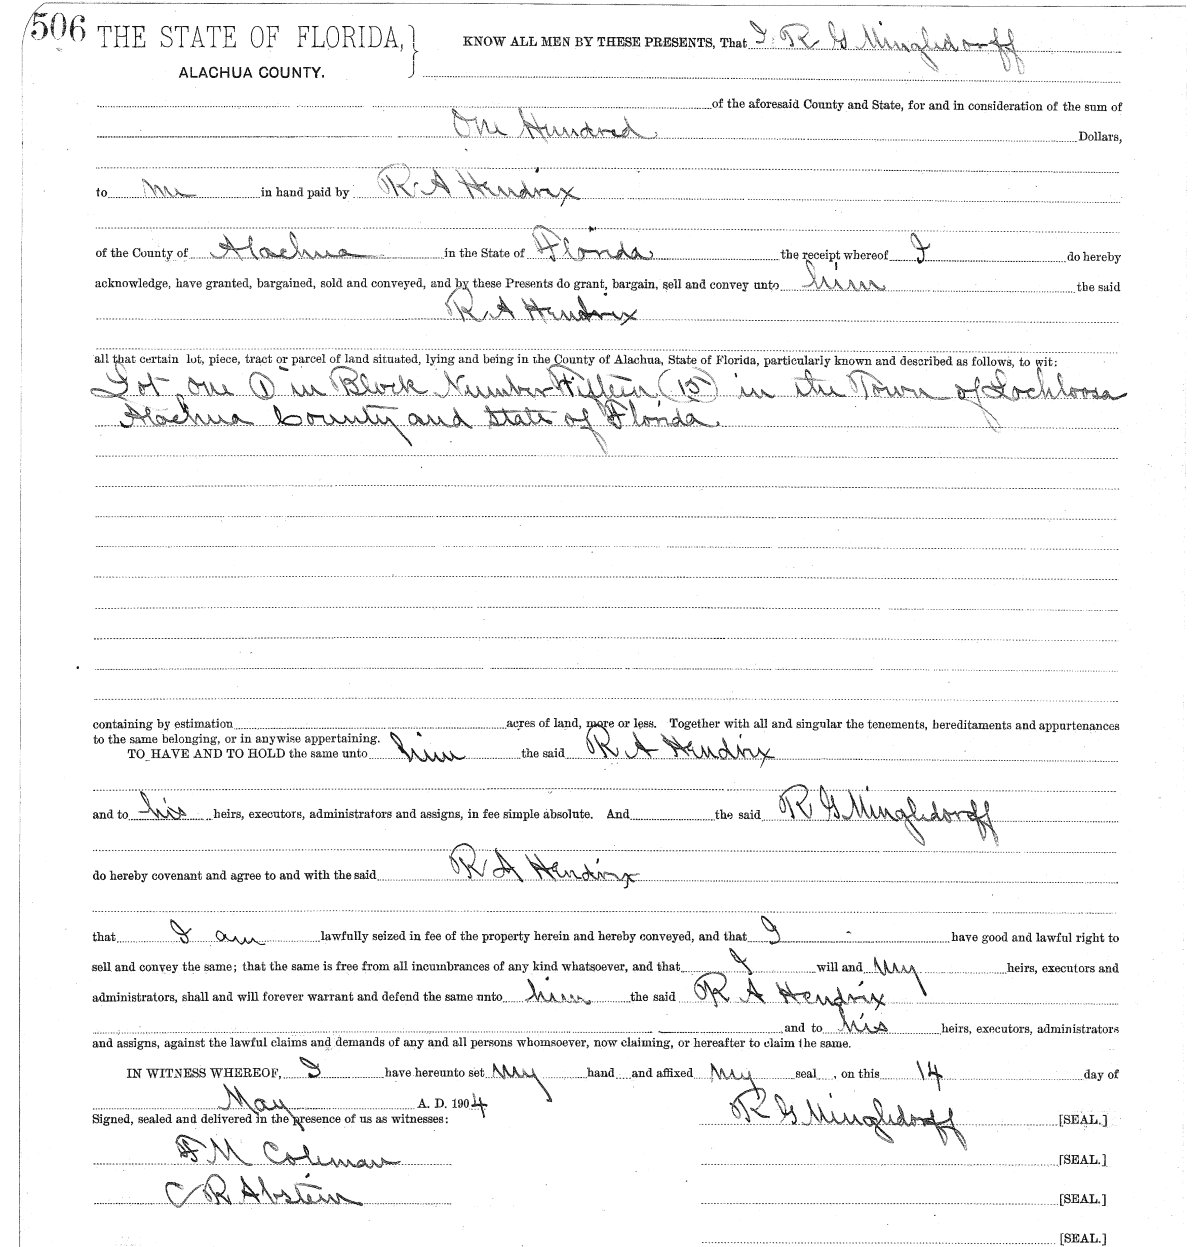 506 THE STATE OF FLORIDA, } KNOW ALL MEN BY THESE PRESENTS, That I R G Minglsdorff
ALACHUA COUNTY.
of the aforesaid County and State, for and in consideration of the sum of
One Hundred Dollars,
to me in hand paid by R. A Hendrix
of the County of Alachua in the State of Florida the receipt whereof I do hereby
acknowledge, have granted, bargained, sold and conveyed, and by these Presents do grant, bargain, sell and convey unto him the said
R. A Hendrix
all that certain lot, piece, tract or parcel of land situated, lying and being in the County of Alachua, State of Florida, particularly known and described as follows, to wit:
Lot one (1) in Block Number Fifteen (15) in the Town of Lochloosa
Alachua County and State of Florida.
containing by estimation acres of land, more or less. Together with all and singular the tenements, hereditaments and appurtenances
to the same belonging, or in anywise appertaining.
TO HAVE AND TO HOLD the same unto him the said R A Hendrix
and to his heirs, executors, administrators and assigns, in fee simple absolute. And the said R G Minglsdorff
do hereby covenant and agree to and with the said R A Hendrix
that I am lawfully seized in fee of the property herein and hereby conveyed, and that I have good and lawful right to
sell and convey the same; that the same is free from all incumbrances of any kind whatsoever, and that I will and my heirs, executors and
administrators, shall and will forever warrant and defend the same unto him the said R A Hendrix
and to his heirs, executors, administrators
and assigns, against the lawful claims and demands of any and all persons whomsoever, now claiming, or hereafter to claim the same.
IN WITNESS WHEREOF, I have hereunto set my hand and affixed my seal, on this 14 day of
May A. D. 1904
Signed, sealed and delivered in the presence of us as witnesses: R G Minglsdorff [SEAL.]
F M Coleman [SEAL.]
C R Abstein [SEAL.]
[SEAL.]